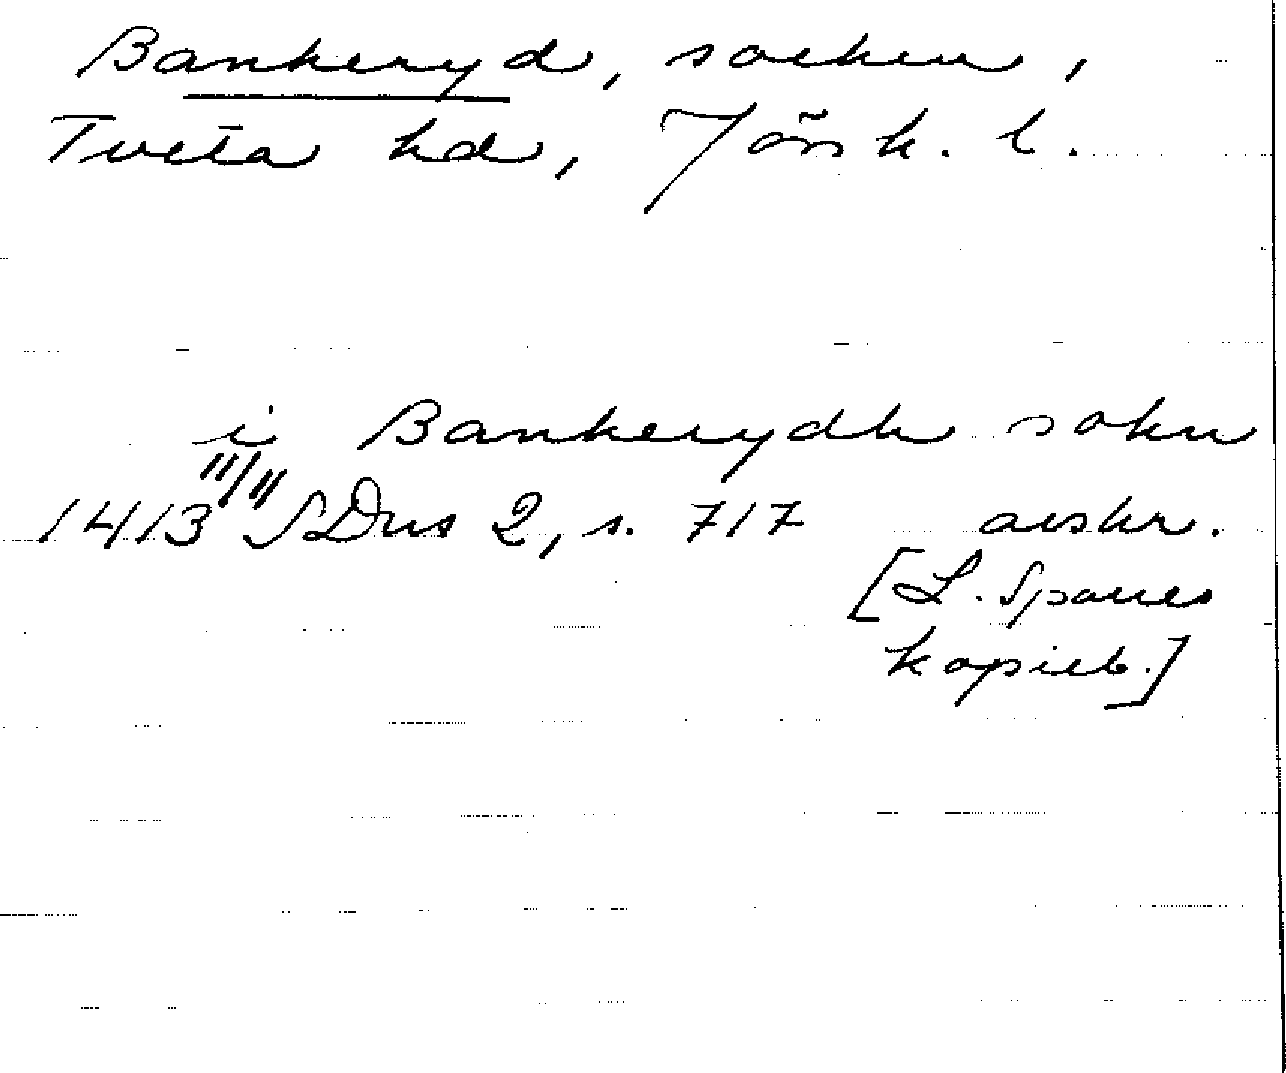 Bankeryd, socken,
Tveta hd, Jönk. l.
i Bankerydh sokn
1413 11/11 SDns 2, s. 717 avskr.
[L. Sparres
kopieb.]